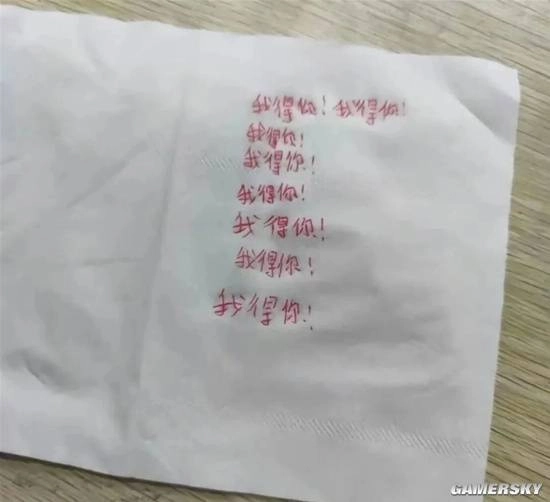 我得你!我得你!
我得你!
我得你!
我得你!
我得你!
我得你!
我得你!
GAMERSKY